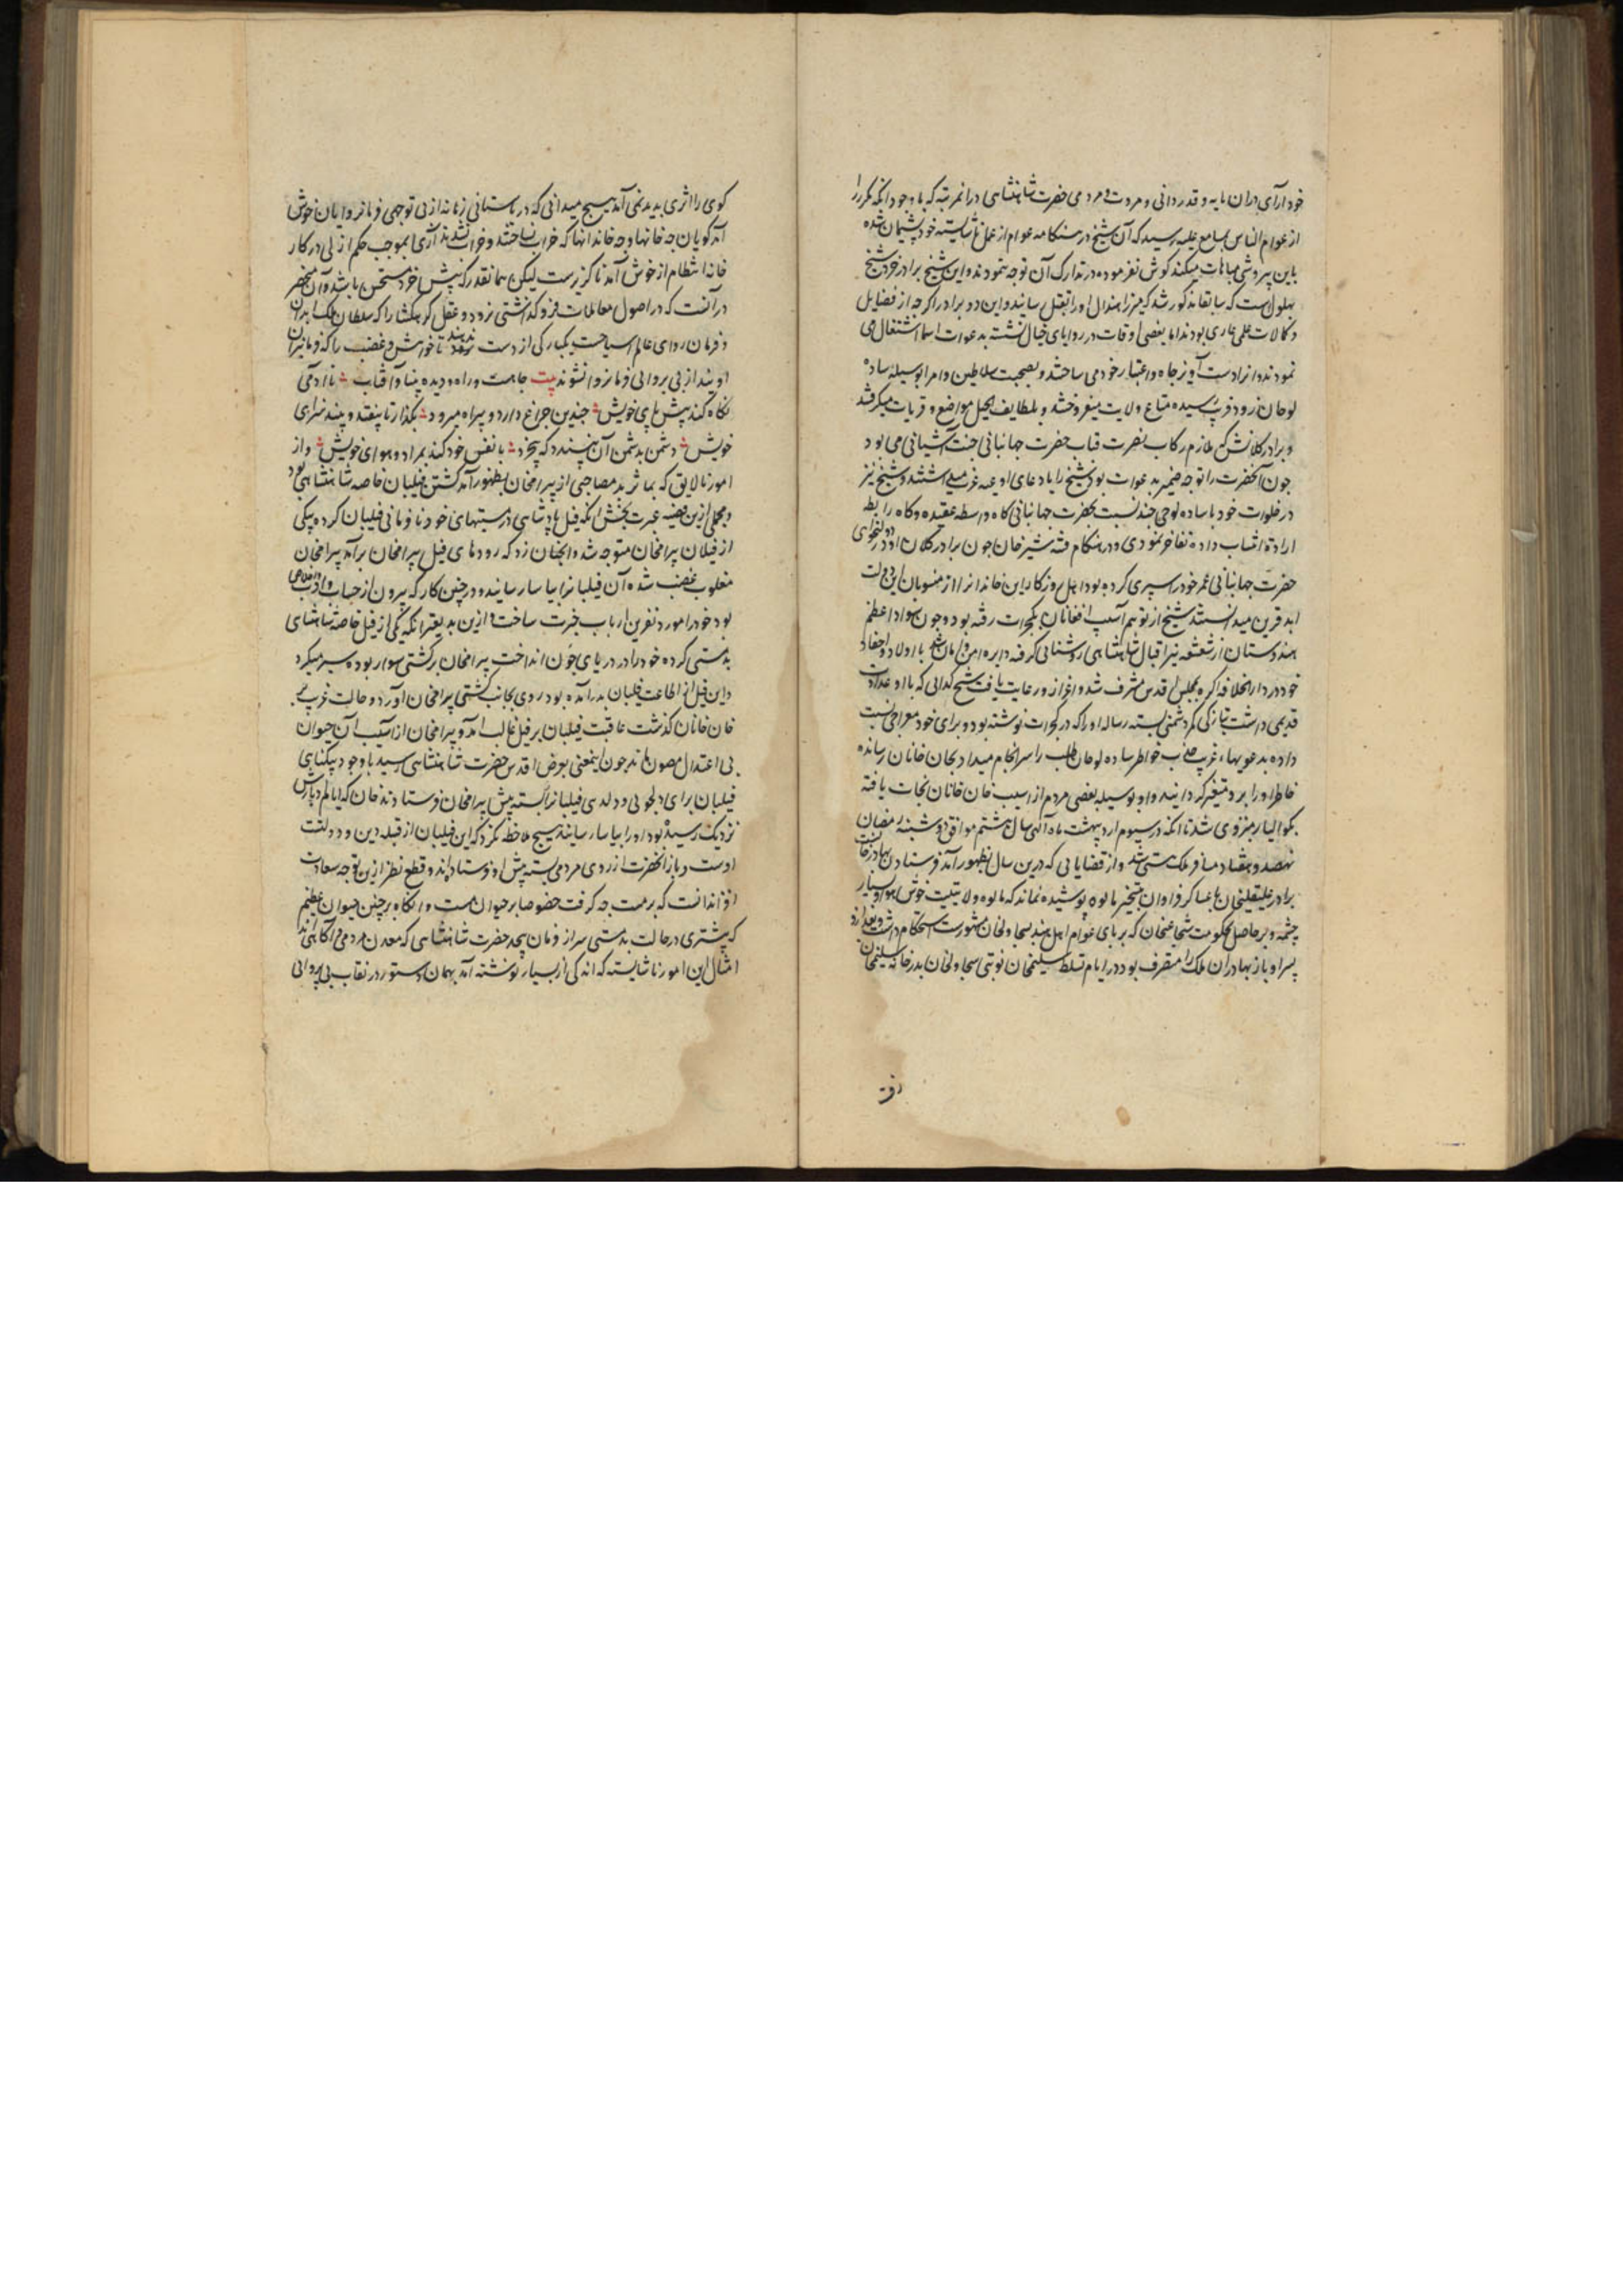 خود آرای دران مایه و قدردانی و مروت و مردمی حضرت شاهنشاهی درانمرتبه که باوجود انکه مکررا
از عوام الناس بمسامع علیه رسید که آن شیخ در هنکامه عوام از عمل ناشایسته خود پشیمان نشده
باین پیر وشی مباهات میکند کوش نفرموده در تدارک آن توجه ننمودند و این شیخ برادر خرد شیخ
بهلول است که سابقا مذکور شد که میرزا هندال اورا بقتل رسانید و این دو برادر اکرچه از فضایل
و کمالات علمی عاری بودند اما بعضی اوقات در زوایای جبال نشسته بدعوت اسما اشتغال می
نمودند و انرا دست آویز جاه و اعتبار خود می ساختند و بصحبت سلاطین و امرا بوسیله ساده
لوحان زود فریب رسیده متاع ولایت میفروختند و بلطایف الحیل مواضع و قریات میکرفتند
و برادر کلانش که ملازم رکاب نصرت قباب حضرت جهانبانی جنت آشیانی می بود
چون آنحضرت را توجه ضمیر بدعوات بود شیخ را باد عای ادعیه غریب میداشتند و شیخ نیز
در خلوات خود با ساده لوحی چند نسبت بحضرت جهانبانی کاه واسطه عقیده و کاه رابطه
ارادة انتساب داده تفاخر نمودی و در هنکام فتنه شیرخان چون برادر کلان او در دولتخواهی
حضرت جهانبانی عمر خود را سپری کرده بود اهل روزکار این خاندانرا از منسوبان این دولت
ابد قرین میدانستند شیخ از توهم آسیب افغانان بکجرات رفته بود و چون سواد اعظم
هندوستان از شعشعه نیر اقبال شاهنشاهی روشنائی کرفته دایره امن و امان شد با اولاد و احفاد
خود در دار الخلافه اکره بمجلس اقدس مشرف شد و اعزاز و رعایت یافت شیخ کدائی که با او عداوت
قدیمی داشت بتازکی کمر دشمنی بسته رساله او را که در کجرات نوشته بود و برای خود معراجی نسبت
داده بدعویهاء غریب جذب خواطر ساده لوحان طلب را سرانجام میداد بخان خانان رسانده
خاطر او را برو متغیر کردانید و او بوسیله بعضی مردم از اسیب خان خانان نجات یافته
بکوالیار منزوی شد تا انکه در سیوم اردیبهشت ماه الهی سال هشتم موافق دوشنبه رمضان
نهصد و هفتاد مسافر ملک نیستی شد و از قضایائی که درین سال بظهور آمد فرستادن بهادرخانست
برادر علیقلیخان با عساکر فراوان بتسخیر مالوه پوشیده نماند که مالوه ولایتیست خوش هوا و بسیار
چشمه و پر حاصل بحکومت شجاعتخان که بر پای عوام اهل هند بسجاولخان مشهورست استحکام داشت و بعد ازو
پسر او باز بهادر آن ملک را متصرف بود در ایام تسلط سلیمخان نوبتی سجاولخان بدرخانه سلیمخان
رفت
کوی را اثری پدید نمی آمد هیچ میدانی که در باستانی زمانه از بی توجهی فرمانروایان خوش
آمد کویان چه خانها و چه خاندانها که خراب نساختند و خراب نشدند آری بموجب حکم ازلی در کار
خانه انتظام از خوش آمد ناکزیرست لیکن همانقدر که پیش خرد مستحسن باشد و آن منحصر
در آنست که در اصول معاملات فروکذاشتی نرود و عقل کرهکشا را که سلطان ملک بدن
و فرمان روای عالم سیاحت یکبارکی از دست ندهند تا خواهش و غضب را که فرمانبران
اویند از بی پروائی فرمانروا نشوند بیت چاهست و راه و دیده بینا و آفتاب ؞ تا آدمی
نکاه کند پیش پای خویش ؞ چندین چراغ دارد و بیراه میرود ؞ بکذار تا بیفتد و بیند سزای
خویش ؞ دشمن بدشمن آن نپسندد که بیخرد ؞ با نفس خود کند بمراد و هوای خویش ؞ و از
امور نالایق که بماثر بد مصاحبی از بیرامخان بظهور آمد کشتن فیلبان خاصه شاهنشاهی بود
و مجملی ازین قضیه عبرت بخش انکه فیل پادشاهی در مستیهای خود نافرمانی فیلبان کرده بیکی
از فیلان بیرامخان متوجه شد و انچنان زد که رودهای فیل بیرامخان برآمد بیرامخان
مغلوب غضب شده آن فیلبانرا بیاسا رسانید و در چنین کار که بیرون از حساب و ادب و اخلاص
بود خود را مورد نفرین ارباب خبرت ساخت و ازین بدیعتر انکه یکی از فیل خاصه شاهنشاهی
بدمستی کرده خود را در دریای جون انداخت بیرامخان بر کشتی سوار بوده سیر میکرد
و این فیل از اطاعت فیلبان بدر آمده بود روی بجانب کشتی بیرامخان آورد و حالت غریب بر
خان خانان کذشت عاقبت فیلبان بر فیل غالب آمد و بیرامخان از آسیب آن حیوان
بی اعتدال مصون ماند چون اینمعنی بعرض اقدس حضرت شاهنشاهی رسید باوجود بیکناهی
فیلبان برای دلجوئی و دلدهی فیلبانرا بسته پیش بیرامخان فرستادند خان که ایام ادبارش
نزدیک رسیده بود او را بیاسا رسانید هیچ ملاحظه نکرد که این فیلبان از قبله دین و دولتت
اوست و باز انحضرت از روی مردمی بسته پیش او فرستاده اند و قطع نظر ازین توجه سعادت
افزا دانست که بر مست چه کرفت خصوصا بر حیوان مست و انکاه بر چنین حیوان عظیم
که بیشتری در حالت بدمستی سر از فرمان پیچد حضرت شاهنشاهی که معدن مردمی و آکاهی اند
امثال این امور ناشایسته که اندکی از بسیار نوشته آمد بهمان دستور در نقاب بی پروائی